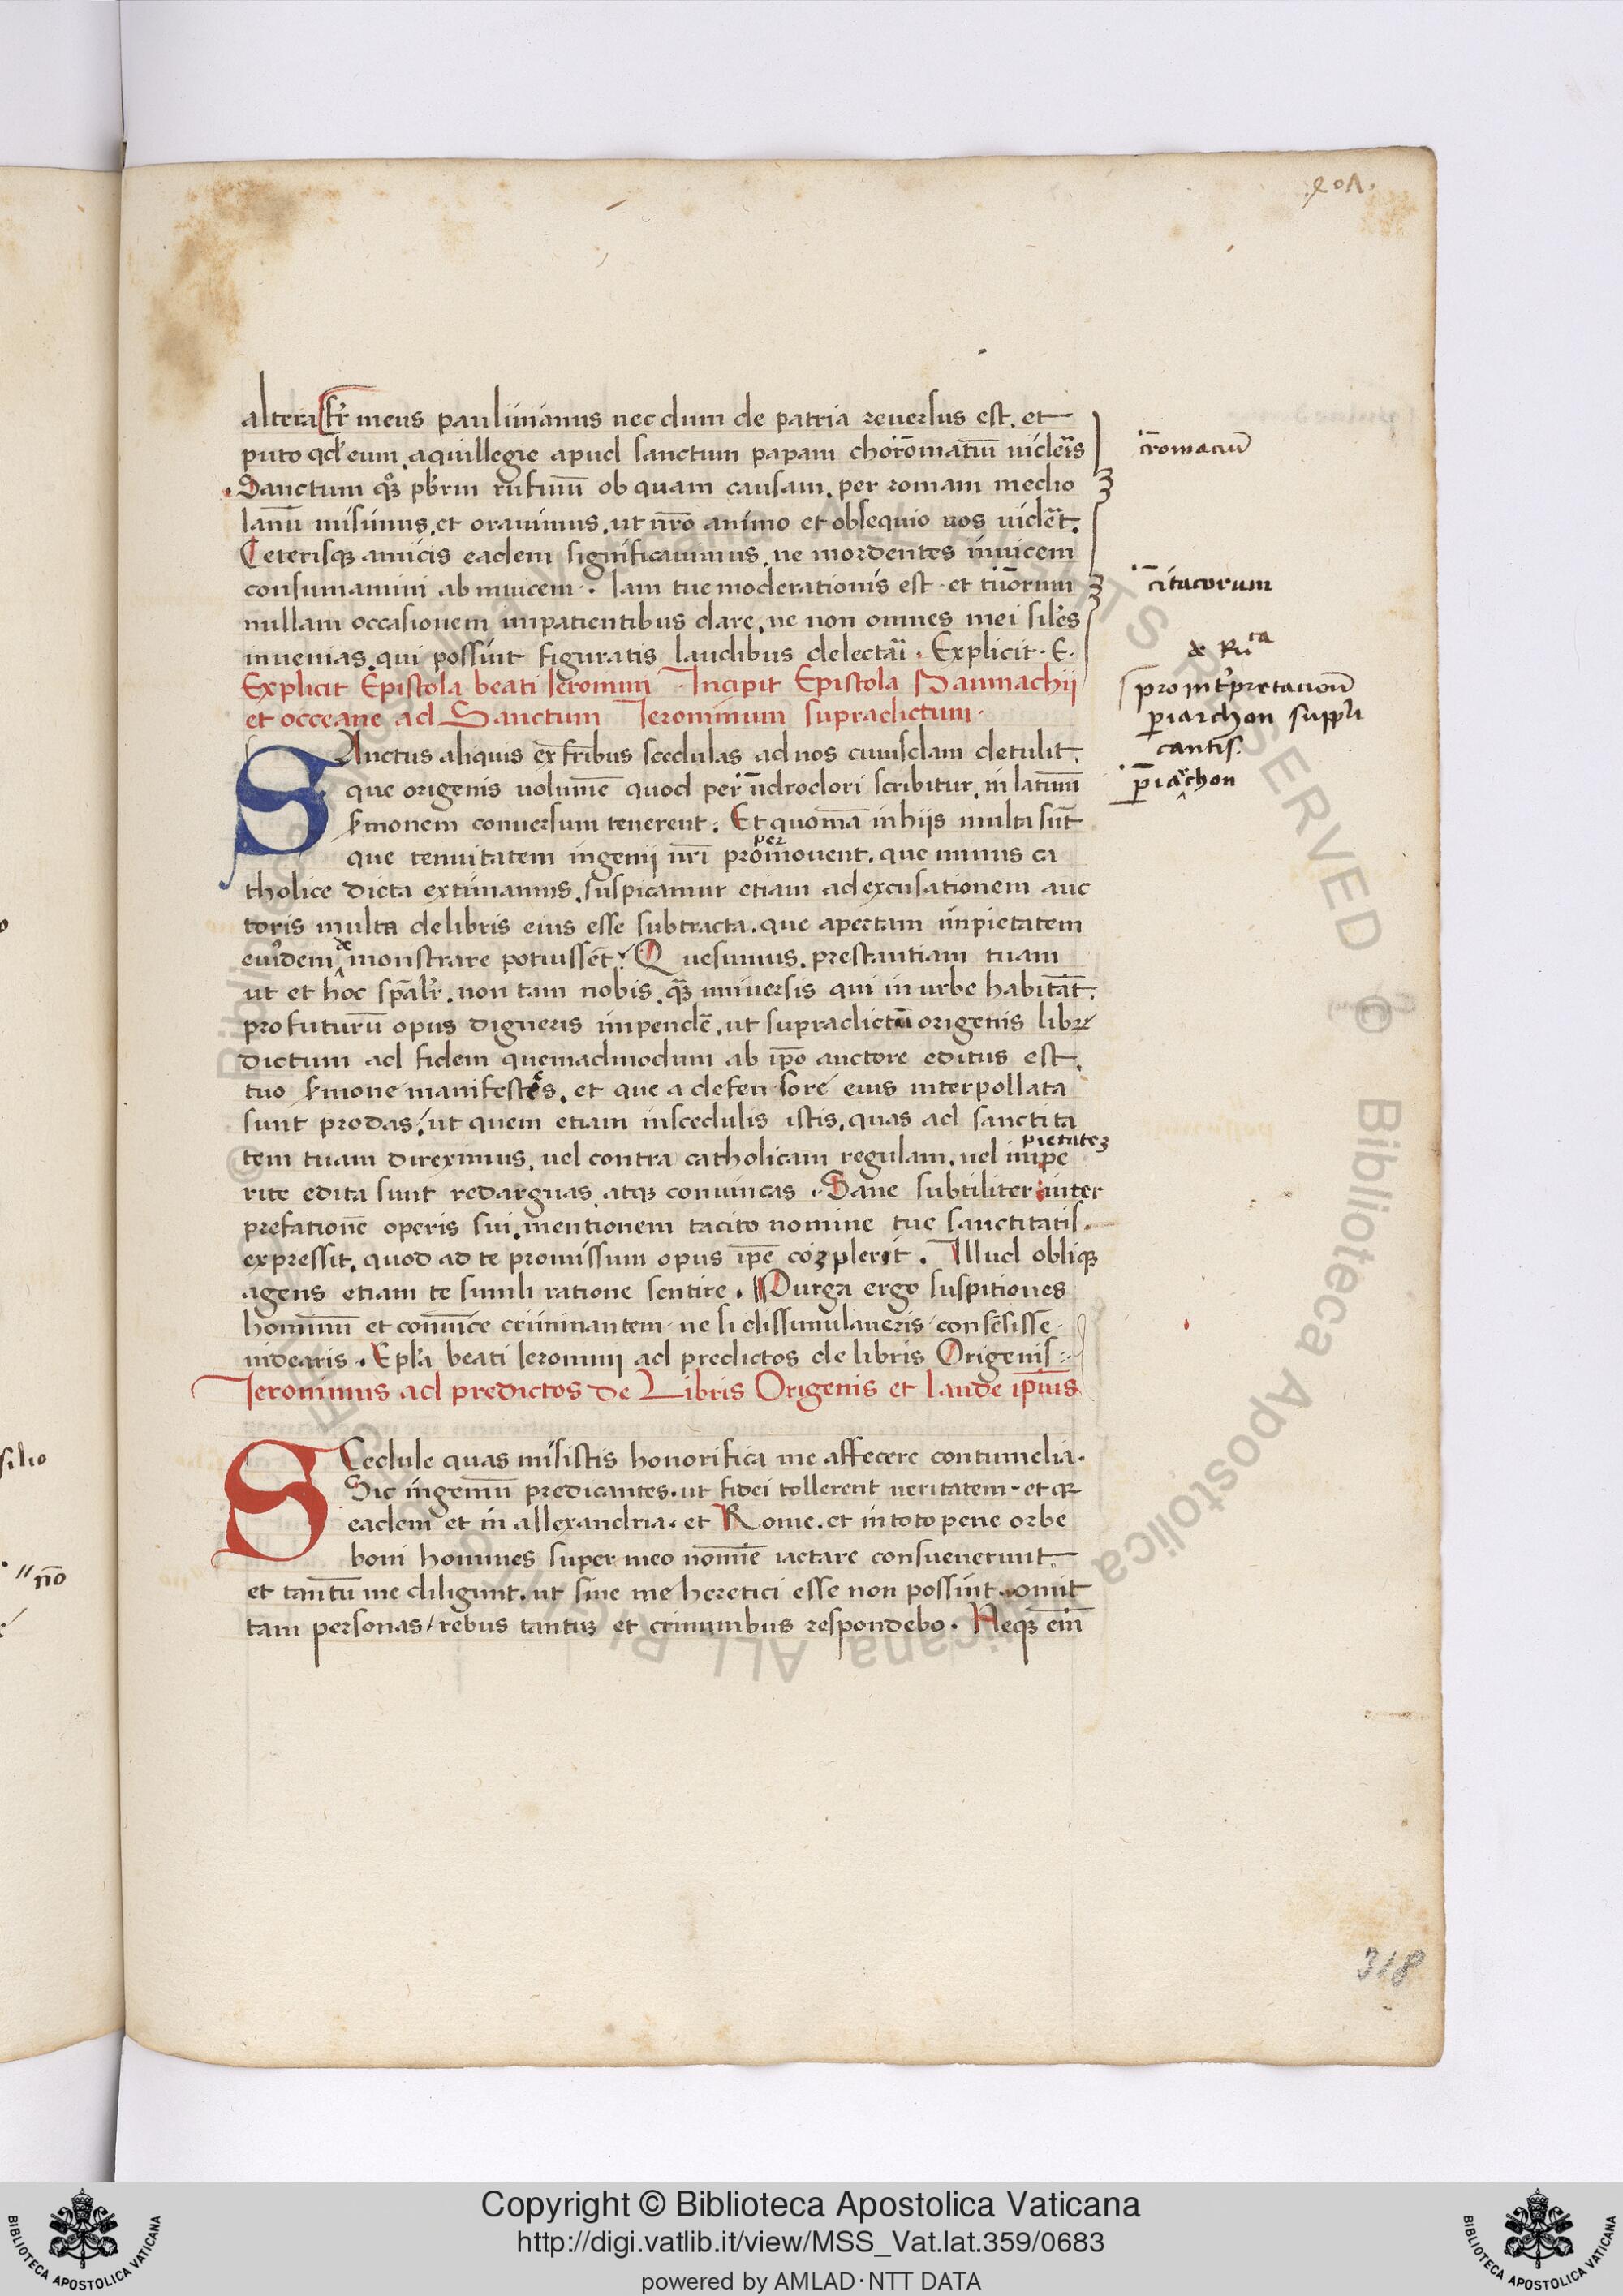 altera fr̄ meus paulinianus nec dum de patria reversus est. et
puto qd' eum aquillegie apud sanctum papam choromatiū uideris
cromaciū
Sanctum qoqȝ pbrm rufinū ob quam causam. per romam medio
lanū misimus. et oravimus. ut nr̄o animo et obsequio uos uideāt.
Ceterisqȝ amicis eadem significavimus. ne mordentes invicem
consumamini ab invicem. Iam tue moderationis est et tuorum
nullam occasionem impatientibus dare. ne non omnes mei siles
invenias. qui possint figuratis laudibus delectari. Explicit. E.
de Ruca
Explicit Epistola beati Ieronimi Incipit Epistola Panmachii
pro interpretationū
et occeane ad Sanctum Ieronimum supradictum.
periarchon suppli
cantis.
SAnctus aliquis ex fribus scedulas ad nos cuiusdam detulit.
periarchon
que origenis volumē quod per udrodori scribitur. in latinū
sermonem conversum tenerent. Et quoniā in hiis multa sūt
per
que tenuitatem ingenii nr̄i promovent. que minus ca
tholice dicta extimamus. suspicamur etiam ad excusationem auc
toris multa de libris eius esse subtracta. que apertam impietatem
de
eiusdem monstrare potuissēt. Quesumus. prestantiam tuam
ut et hoc sp̄alr. non tam nobis. qȝ universis qui in urbe habitāt.
profuturū opus digneris impendē. ut supradictū origenis libr
dictum ad fidem quemadmodum ab ipo auctore editus est.
tuo sermone manifestes. et que a defensore eius interpollata
sunt prodas. ut quem etiam in scedulis istis. quas ad sanctita
pietateȝ
tem tuam direximus. uel contra catholicam regulam. uel impe
rite edita sunt redarguas atqȝ convincas. Sane subtiliter inter
prefationē operis sui. mentionem tacito nomine tue sanctitatis.
expressit. quod ad te promissum opus ipē coȝplerit. Illud obliqȝ
agens etiam te simili ratione sentire. Purga ergo suspitiones
hominū et convīce criminantem ne si dissimulaveris consēsisse
uidearis. Epl'a beati Ieronimi ad predictos de libris Origenis
Ieronimus ad predictos de Libris Origenis et laude ipius
SCedule quas misistis honorifica me affecere contumelia.
Sic ingeniū predicantes. ut fidei tollerent ueritatem. et qȝ
eadem et in allexandria. et Rome. et in toto pene orbe
boni homines super meo nomīe iactare consueverunt.
et tantū me diligunt. ut sine me heretici esse non possint omit
tam personas / rebus tantuȝ et criminibus respondebo. Neqȝ em̄
318
Copyright © Biblioteca Apostolica Vaticana
http://digi.vatlib.it/view/MSS_Vat.lat.359/0683
powered by AMLAD·NTT DATA